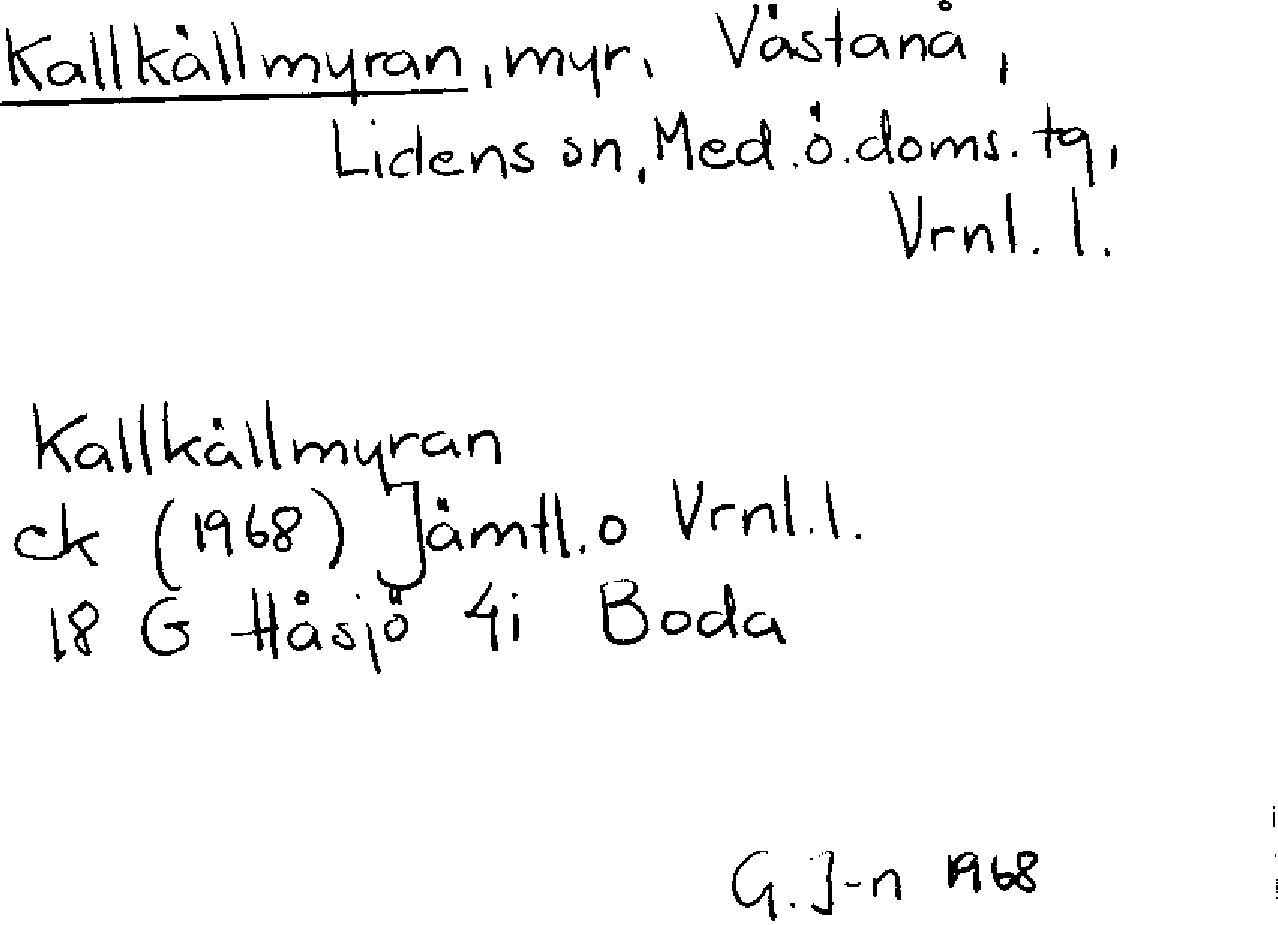 Kallkällmyran, myr, Västanå,
Lidens sn, Med.ö.doms.tg,
Vrnl. l.
Kallkällmyran
ek (1968) Jämtl.o Vrnl.l.
18 G Håsjö 4i Boda
G.J-n 1968